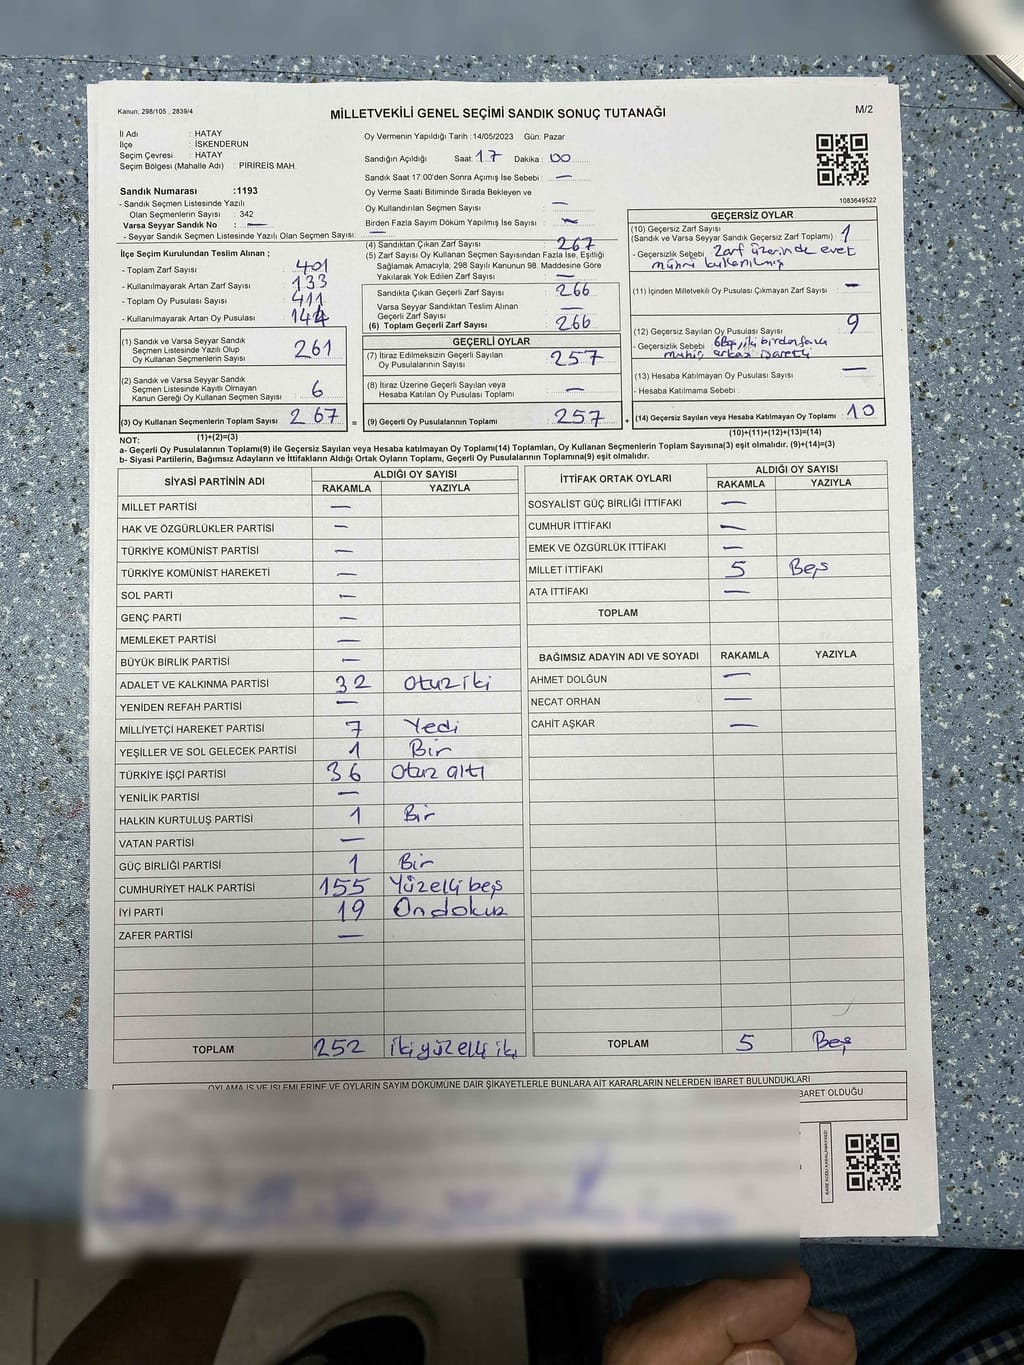 Kanun; 298/105 , 2839/4
MİLLETVEKİLİ GENEL SEÇİMİ SANDIK SONUÇ TUTANAĞI
M/2
İl Adı : HATAY
İlçe : İSKENDERUN
Seçim Çevresi : HATAY
Seçim Bölgesi (Mahalle Adı) : PİRİREİS MAH.
Oy Vermenin Yapıldığı Tarih :14/05/2023 Gün: Pazar
Sandığın Açıldığı Saat: 17 Dakika : 00
Sandık Saat 17:00'den Sonra Açımış İse Sebebi : —
Oy Verme Saati Bitiminde Sırada Bekleyen ve
Oy Kullandırılan Seçmen Sayısı : —
Birden Fazla Sayım Döküm Yapılmış İse Sayısı : —
1083649522
Sandık Numarası :1193
- Sandık Seçmen Listesinde Yazılı
Olan Seçmenlerin Sayısı : 342
Varsa Seyyar Sandık No : —
- Seyyar Sandık Seçmen Listesinde Yazılı Olan Seçmen Sayısı: —
İlçe Seçim Kurulundan Teslim Alınan ;
- Toplam Zarf Sayısı : 401
- Kullanılmayarak Artan Zarf Sayısı : 133
- Toplam Oy Pusulası Sayısı : 411
- Kullanılmayarak Artan Oy Pusulası : 144
(1) Sandık ve Varsa Seyyar Sandık
Seçmen Listesinde Yazılı Olup
Oy Kullanan Seçmenlerin Sayısı : 261
(2) Sandık ve Varsa Seyyar Sandık
Seçmen Listesinde Kayıtlı Olmayan
Kanun Gereği Oy Kullanan Seçmen Sayısı : 6
(3) Oy Kullanan Seçmenlerin Toplam Sayısı : 267 =
(4) Sandıktan Çıkan Zarf Sayısı : 267
(5) Zarf Sayısı Oy Kullanan Seçmen Sayısından Fazla İse, Eşitliği
Sağlamak Amacıyla, 298 Sayılı Kanunun 98. Maddesine Göre
Yakılarak Yok Edilen Zarf Sayısı : —
Sandıkta Çıkan Geçerli Zarf Sayısı : 266
Varsa Seyyar Sandıktan Teslim Alınan
Geçerli Zarf Sayısı : —
(6) Toplam Geçerli Zarf Sayısı : 266
GEÇERLİ OYLAR
(7) İtiraz Edilmeksizin Geçerli Sayılan
Oy Pusulalarının Sayısı : 257
(8) İtiraz Üzerine Geçerli Sayılan veya
Hesaba Katılan Oy Pusulası Toplamı : —
(9) Geçerli Oy Pusulalarının Toplamı : 257 +
GEÇERSİZ OYLAR
(10) Geçersiz Zarf Sayısı
(Sandık ve Varsa Seyyar Sandık Geçersiz Zarf Toplamı) : 1
- Geçersizlik Sebebi : Zarf üzerinde evet
mührü kullanılmış
(11) İçinden Milletvekili Oy Pusulası Çıkmayan Zarf Sayısı : —
(12) Geçersiz Sayılan Oy Pusulası Sayısı : 9
- Geçersizlik Sebebi : birden fazla
mühür arkası işaretli
(13) Hesaba Katılmayan Oy Pusulası Sayısı : —
- Hesaba Katılmama Sebebi :
(14) Geçersiz Sayılan veya Hesaba Katılmayan Oy Toplamı : 10
(10)+(11)+(12)+(13)=(14)
(1)+(2)=(3)
NOT:
a- Geçerli Oy Pusulalarının Toplamı(9) ile Geçersiz Sayılan veya Hesaba Katılmayan Oy Toplamı(14) Toplamları, Oy Kullanan Seçmenlerin Toplam Sayısına(3) eşit olmalıdır. (9)+(14)=(3)
b- Siyasi Partilerin, Bağımsız Adayların ve İttifakların Aldığı Ortak Oyların Toplamı, Geçerli Oy Pusulalarının Toplamına(9) eşit olmalıdır.
SİYASİ PARTİNİN ADI ALDIĞI OY SAYISI
RAKAMLA YAZIYLA
MİLLET PARTİSİ —
HAK VE ÖZGÜRLÜKLER PARTİSİ —
TÜRKİYE KOMÜNİST PARTİSİ —
TÜRKİYE KOMÜNİST HAREKETİ —
SOL PARTİ —
GENÇ PARTİ —
MEMLEKET PARTİSİ —
BÜYÜK BİRLİK PARTİSİ —
ADALET VE KALKINMA PARTİSİ 32 Otuz iki
YENİDEN REFAH PARTİSİ —
MİLLİYETÇİ HAREKET PARTİSİ 7 Yedi
YEŞİLLER VE SOL GELECEK PARTİSİ 1 Bir
TÜRKİYE İŞÇİ PARTİSİ 36 Otuz altı
YENİLİK PARTİSİ —
HALKIN KURTULUŞ PARTİSİ 1 Bir
VATAN PARTİSİ —
GÜÇ BİRLİĞİ PARTİSİ 1 Bir
CUMHURİYET HALK PARTİSİ 155 Yüzelli beş
İYİ PARTİ 19 Ondokuz
ZAFER PARTİSİ —
TOPLAM 252 İkiyüzelli iki
İTTİFAK ORTAK OYLARI ALDIĞI OY SAYISI
RAKAMLA YAZIYLA
SOSYALİST GÜÇ BİRLİĞİ İTTİFAKI —
CUMHUR İTTİFAKI —
EMEK VE ÖZGÜRLÜK İTTİFAKI —
MİLLET İTTİFAKI 5 Beş
ATA İTTİFAKI —
TOPLAM
BAĞIMSIZ ADAYIN ADI VE SOYADI RAKAMLA YAZIYLA
AHMET DOLĞUN —
NECAT ORHAN —
CAHİT AŞKAR —
TOPLAM 5 Beş
OYLAMA İŞ VE İŞLEMLERİNE VE OYLARIN SAYIM DÖKÜMÜNE DAİR ŞİKAYETLERLE BUNLARA AİT KARARLARIN NELERDEN İBARET BULUNDUKLARI
BARET OLDUĞU